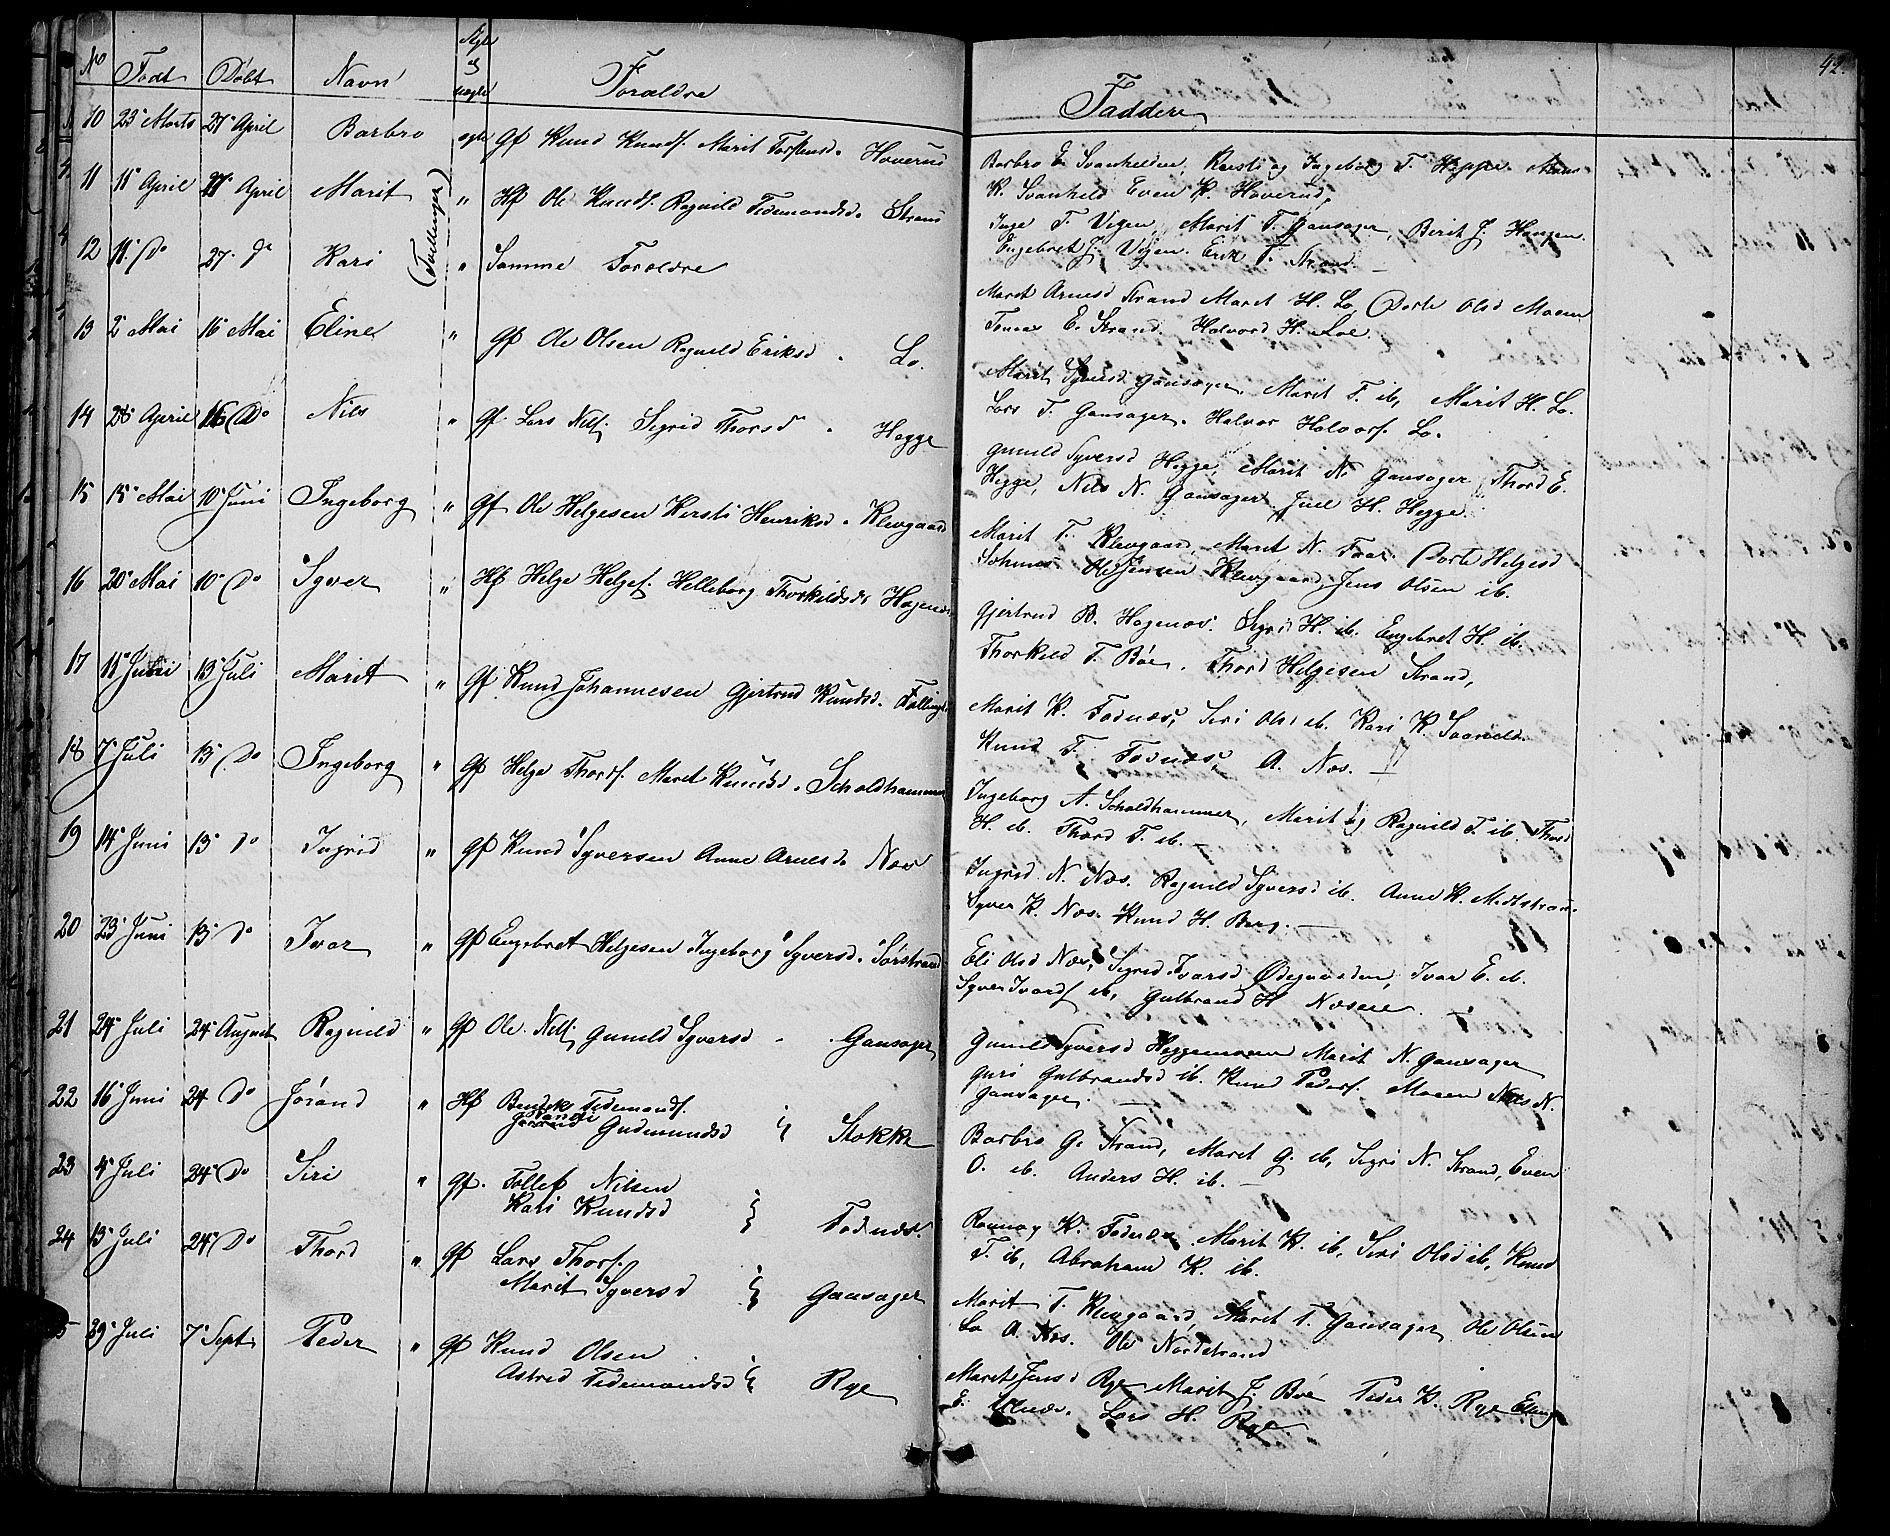 42.
No Født Døbt Navn Ægte & uægte Forældre
Faddere
10 23 Marts 27 April Barbro ægte Gf Knud Knuds. Marit Torstensd. Haverud
Barbro E Svanhelden, Kersti og Ingeborg T. Hegge
K. Svanheld Even K. Haverud,
11 11 April 27 April Marit " Hf Ole Knuds. Ragnild Tedemandsd. Strand
Inge T. Vigen, Marit T. Gansager, Berit J. Haugen.
Engebret J. Vigen. Erik T. Strand.
(Tvillinger)
12 11 Do 27 Do Kari " Samme Forældre
Maret Arnesd Strand Maret H. Lo, Dorte Olsd Moen
Tomas E. Strand. Halvord H. Loe.
13 2 Mai 16 Mai Eline " Gf Ole Olsen Ragnild Eriksd. Lo.
Marit Syversd Gansager, Marit T. ib, Marit H. Lo.
Lars T. Gansager. Halvor Halvors. Lo.
14 28 April 16 Do Nils " Gf. Lars Nils. Sigrid Thorsd. Hegge
Gunild Syversd Hegge, Marit N. Gansager, Thord E.
Hegge, Nils N. Gansager Juel H. Hegge.
15 15 Mai 10 Juni Ingeborg " Gf Ole Helgesen Kersti Henriksd. Klevgaard
Marit T. Klevgaard, Maret N. Dorte Helgesd
Ole Jensen Klevgaard, Jens Olsen ib.
16 20 Mai 10 Do Syver " Hf Helge Helges. Helleborg Thorkildsd. Hagenæs
Gjertrud B. Hagenæs. Sigri H. ib. Engebret H. ib.
Thorkild T. Bøe. Thord Helgesen Strand,
17 11 13 Juli Marit " Gf Knud Johannesen Gjertrud Knudsd.
Marit K. Fodnæs, Siri Ols ib. Kari K.
Knud T. Fodnæs, A. Næs.
18 7 Juli 13 Do Ingeborg " Gf Helge Thords. Maret Knudsd. Scholdhammer
Ingeborg A. Scholdhammer, Marit og Ragnild T. ib. Thord
H. ib. Thord T. ib.
19 14 Juni 13 Do Ingrid " Gf Knud Syversen Anne Arnesd. Næs
Ingrid N. Næs. Ragnild Syversd ib. Anne K. Midtstrand
Syver K. Næs. Knud H. Berg.
20 23 Juni 13 Do Ivar " Gf Engebret Helgesen Ingeborg Syversd. Sørstrand
Eli Olsd Næs, Sigrid Ivarsd Ødegaarden, Ivar E. ib.
Syver Ivars ib, Gulbrand H Næseie.
21 24 Juli 24 August Ragnild " Gf Ole Nils. Gunild Syversd. Gansager
Gunild Syversd Heggemoen Marit N. Gansager
Guri Gulbrandsd ib. Knud Peders. Moeen Nils N.
Gansager.
22 16 Juni 24 Do Jørand " Hf Tidemands.
Gudmundsd } Stokke
Barbro G. Strand, Maret G. ib, Sigri N. Strand, Even
O. ib. Anders H. ib.
23 4 Juli 24 Do Siri " Gf. Tollef Nilsen
Kari Knudsd } Fodnæs.
Rannoy K. Fodnæs Marit K. ib, Siri Olsd ib, Knud
T. ib, Abraham K. ib.
24 13 Juli 24 Do Thord " Gf Lars Thors.
Marit Syversd } Gansager
Marit T. Klevgaard, Maret T. Gansager, Ole Olsen
Lo A. Næs. Ole Nordstrand
29 Juli 7 Sept Peder " Gf Knud Olsen
Astrid Tedemandsd } Rye
Marit Jensd Rye Marit J. Bøe Peder K. Rye
Lars H. Rye